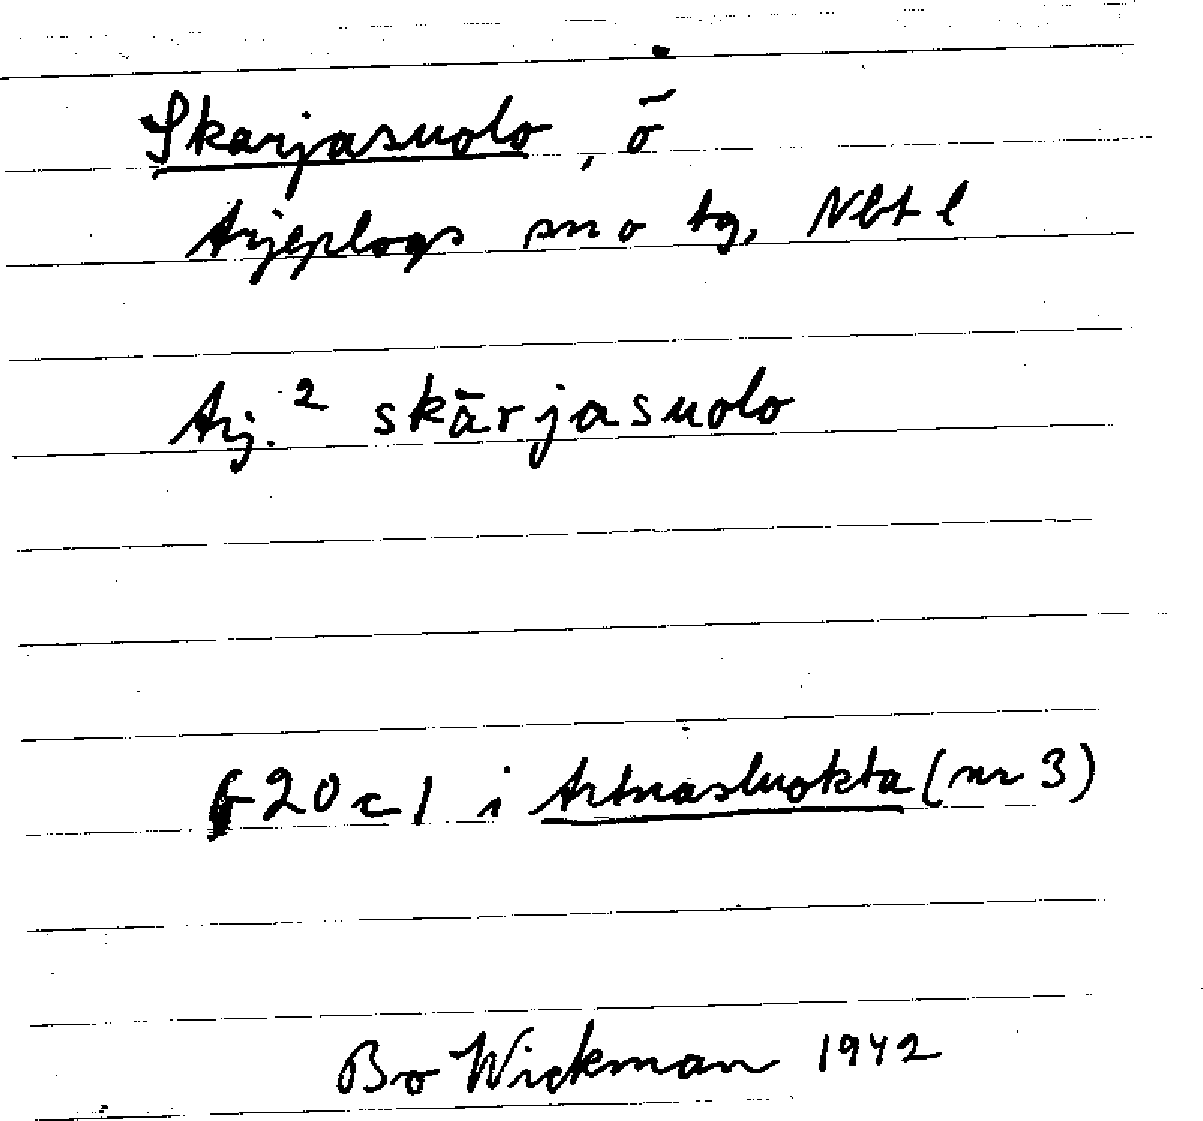 Skarjasuolo, ö
Arjeplogs sn o tg, Nbt l
Arj.² skārjasuolo
F20c1 i Artnasluokta (nr 3)
Bo Wickman 1942